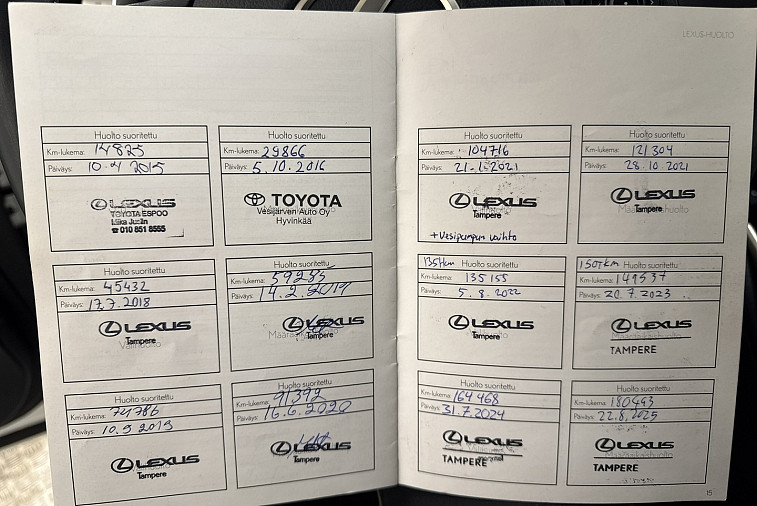 LEXUS-HUOLTO
Huolto suoritettu
Km-lukema: 14825
Päiväys: 10.4 2015
LEXUS
TOYOTA ESPOO
☎ 010 851 8555
Huolto suoritettu
Km-lukema: 29866
Päiväys: 5.10.2016
TOYOTA
Vesijärven Auto Oy
Hyvinkää
Huolto suoritettu
Km-lukema: 45432
Päiväys: 17.7.2018
LEXUS
Tampere
Huolto suoritettu
Km-lukema: 59285
Päiväys: 14.2.2019
LEXUS
Tampere
Huolto suoritettu
Km-lukema: 74786
Päiväys: 10.9 2019
LEXUS
Tampere
Huolto suoritettu
Km-lukema: 91392
Päiväys: 16.6.2020
LEXUS
Tampere
Huolto suoritettu
Km-lukema: 104716
Päiväys: 21.1.2021
LEXUS
Tampere
+Vesipumpun vaihto
Huolto suoritettu
Km-lukema: 121304
Päiväys: 28.10.2021
LEXUS
Tampere
135tkm Huolto suoritettu
Km-lukema: 135158
Päiväys: 5.8.2022
LEXUS
Tampere
150Tkm Huolto suoritettu
Km-lukema: 149537
Päiväys: 20.7.2023
LEXUS
TAMPERE
Huolto suoritettu
Km-lukema: 164468
Päiväys: 31.7.2024
LEXUS
TAMPERE
Huolto suoritettu
Km-lukema: 180493
Päiväys: 22.8.2025
LEXUS
TAMPERE
15